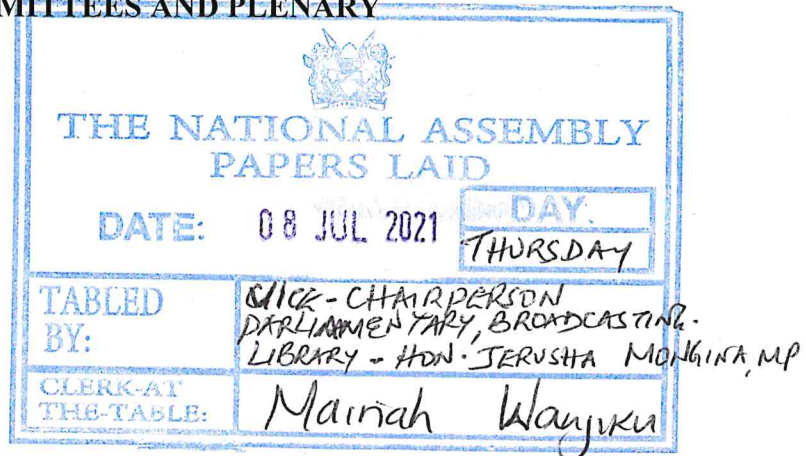 MMITTEES AND PLENARY
THE NATIONAL ASSEMBLY
PAPERS LAID
DATE: 08 JUL 2021 DAY:
THURSDAY
TABLED BY:
VICE-CHAIRPERSON
PARLIAMENTARY, BROADCASTING.
LIBRARY - HON. JERUSHA MONGINA, MP
CLERK-AT THE-TABLE:
Mainah Wanjiku